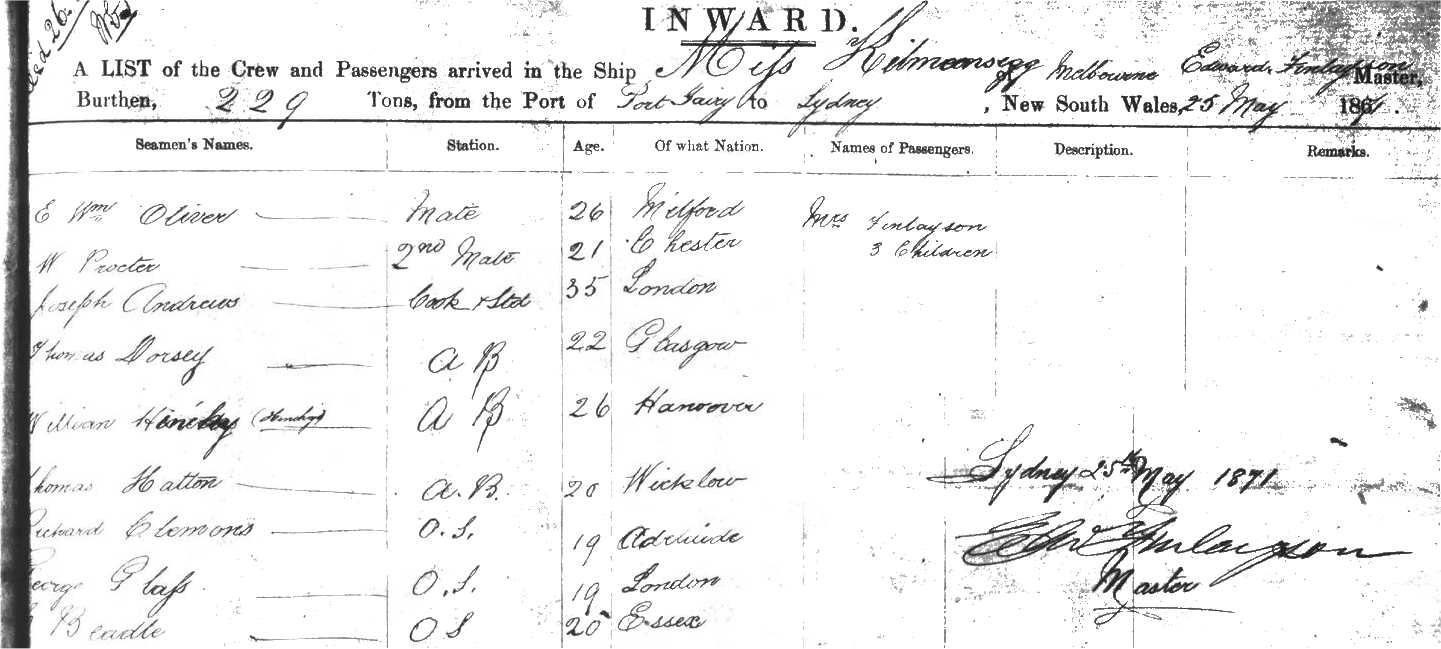 INWARD.
A LIST of the Crew and Passengers arrived in the Ship Miss Kilmansegg of Melbourne Edward Finlayson Master,
Burthen, 229 Tons, from the Port of Port Fairy to Sydney, New South Wales, 25 May 1871.
Seamen's Names. Station. Age. Of what Nation. Names of Passengers. Description. Remarks.
E Wm Oliver Mate 26 Milford Mrs Finlayson
3 Children
W Procter 2nd Mate 21 Chester
Joseph Andrews Cook & Std 35 London
Thomas Dorsey A B 22 Glasgow
William A B 26 Hanover
Thomas Hatton A.B. 20 Wicklow
Sydney 25th May 1871
Richard Clemons O.S. 19 Adelaide
Edwd Finlayson
George Glass O.S. 19 London
Master
Beadle O S 20 Essex